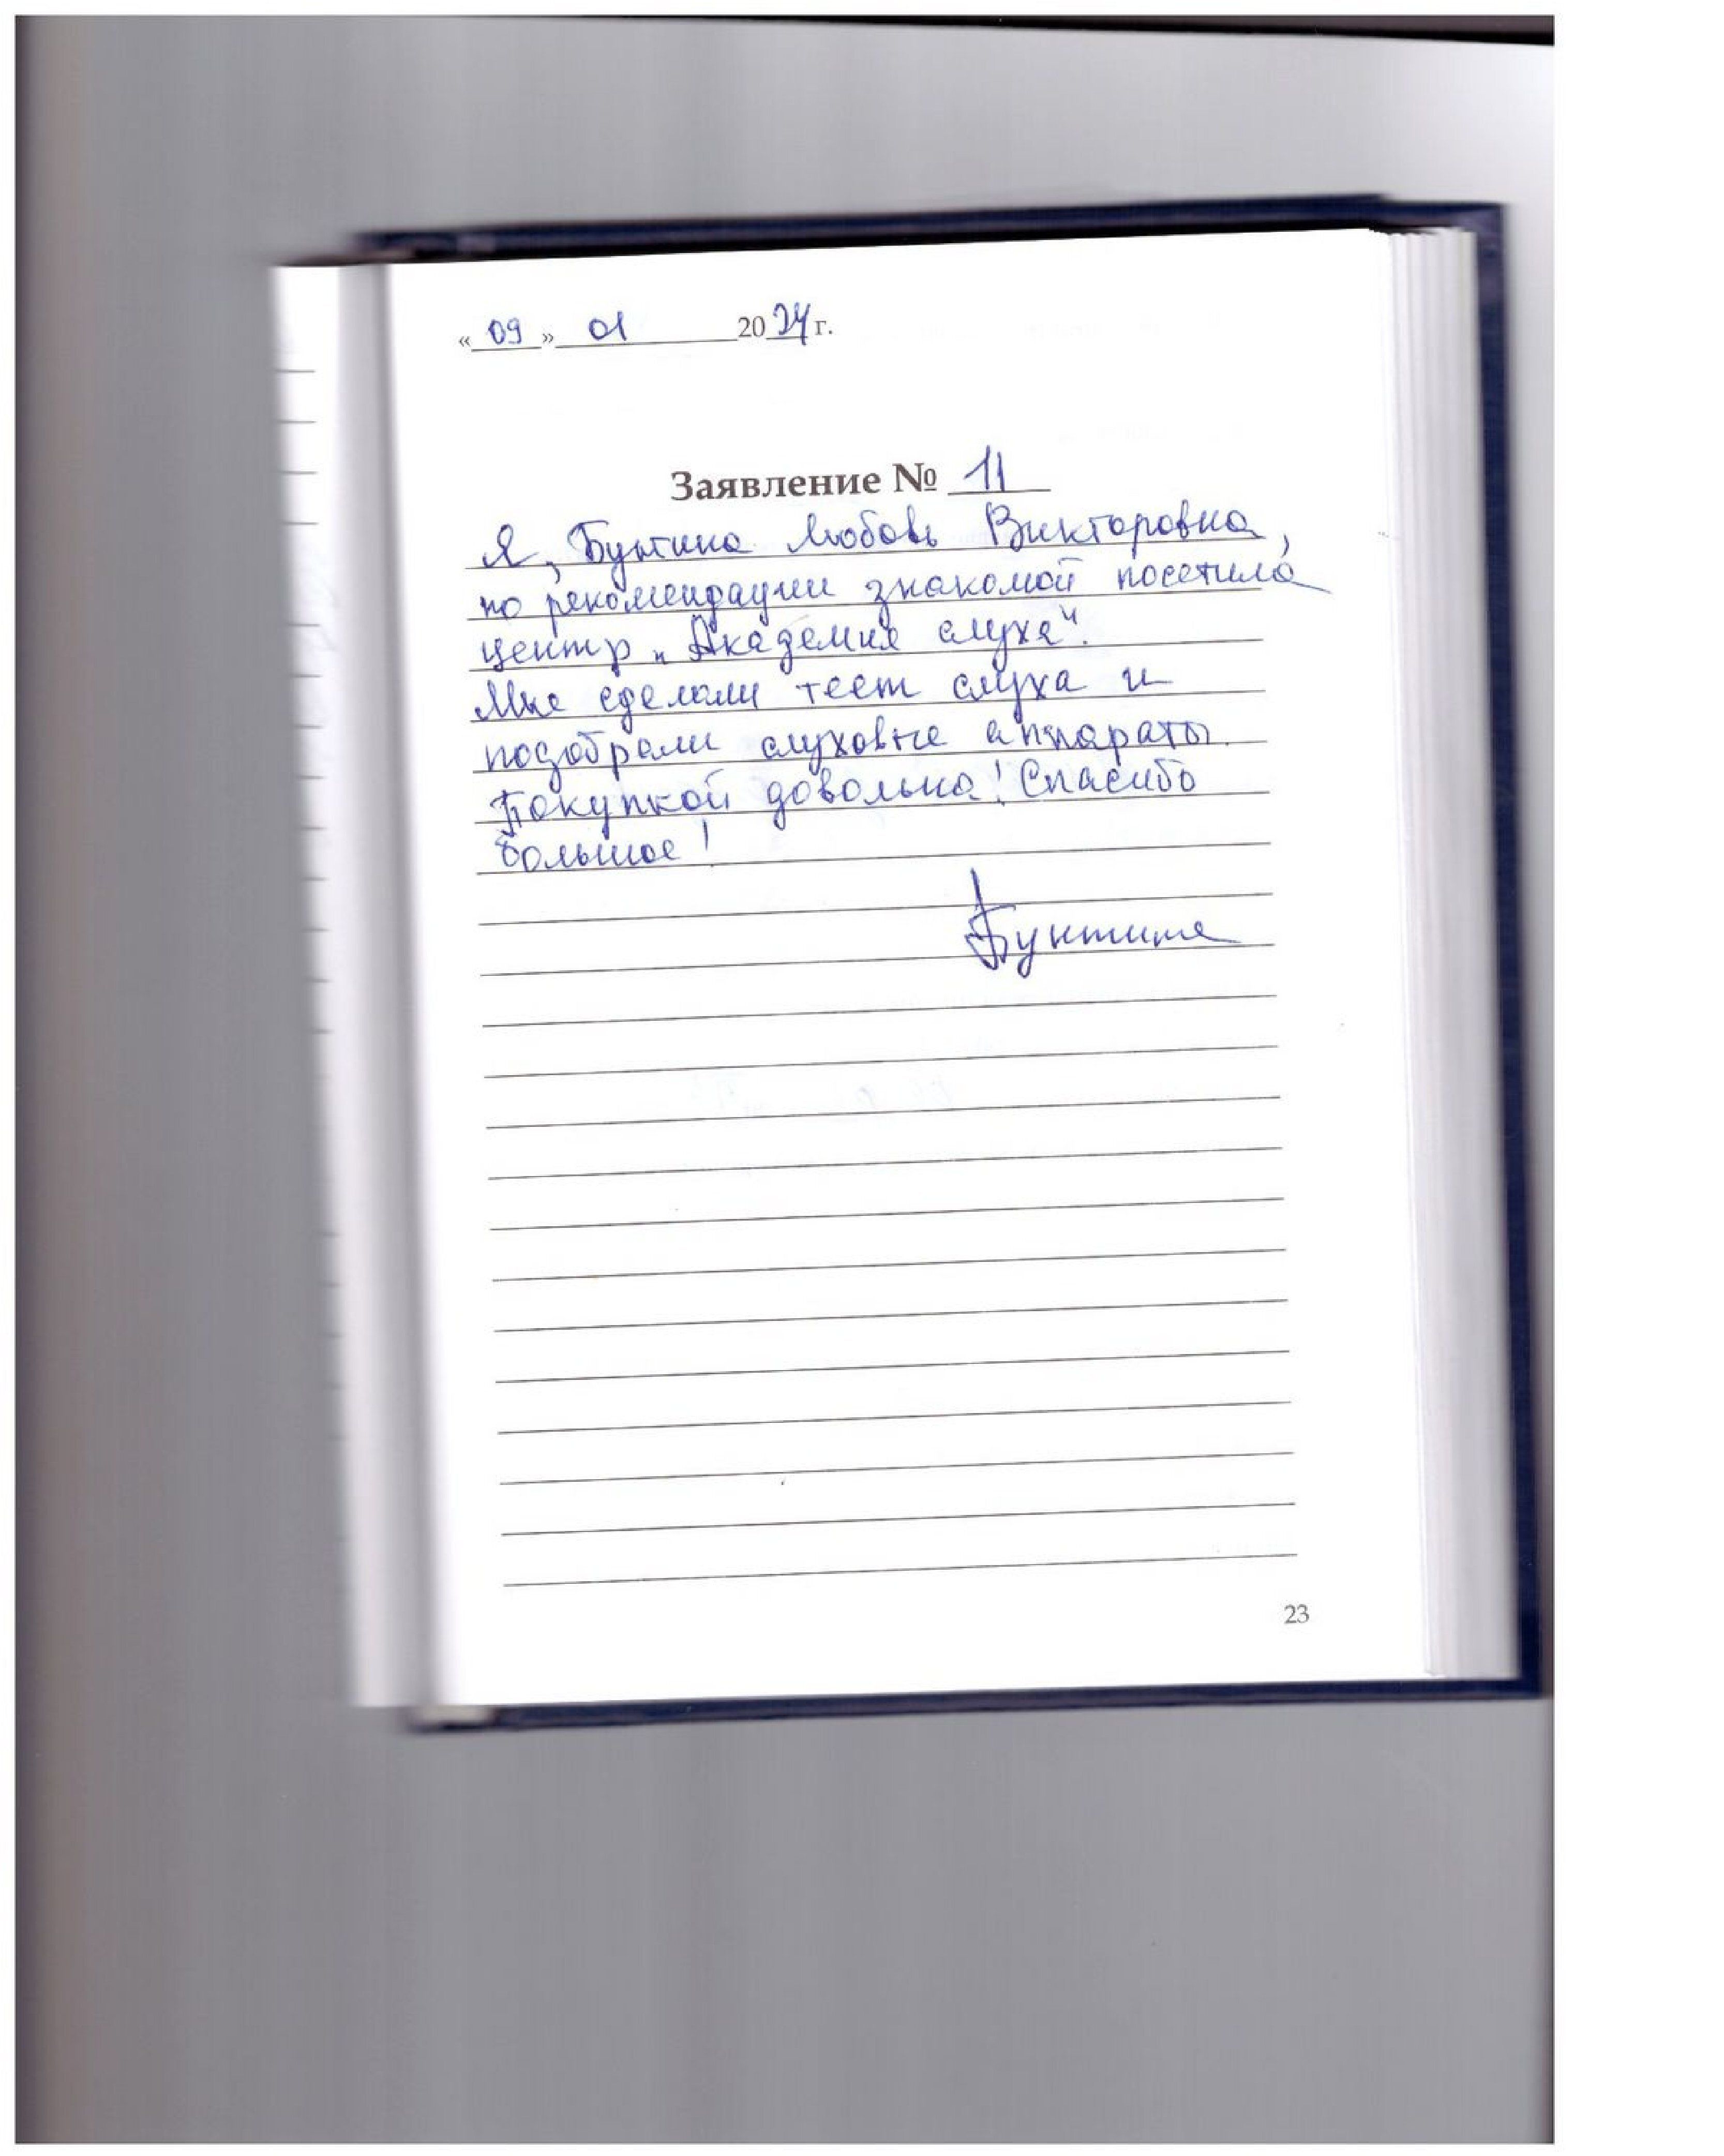 « 09 » 01 2024 г.
Заявление № 11
Я, Бунтина Любовь Викторовна,
по рекомендации знакомой посетила
центр „Академия слуха".
Мне сделали тест слуха и
подобрали слуховые аппараты.
Покупкой довольна! Спасибо
большое!
Бунтина
23